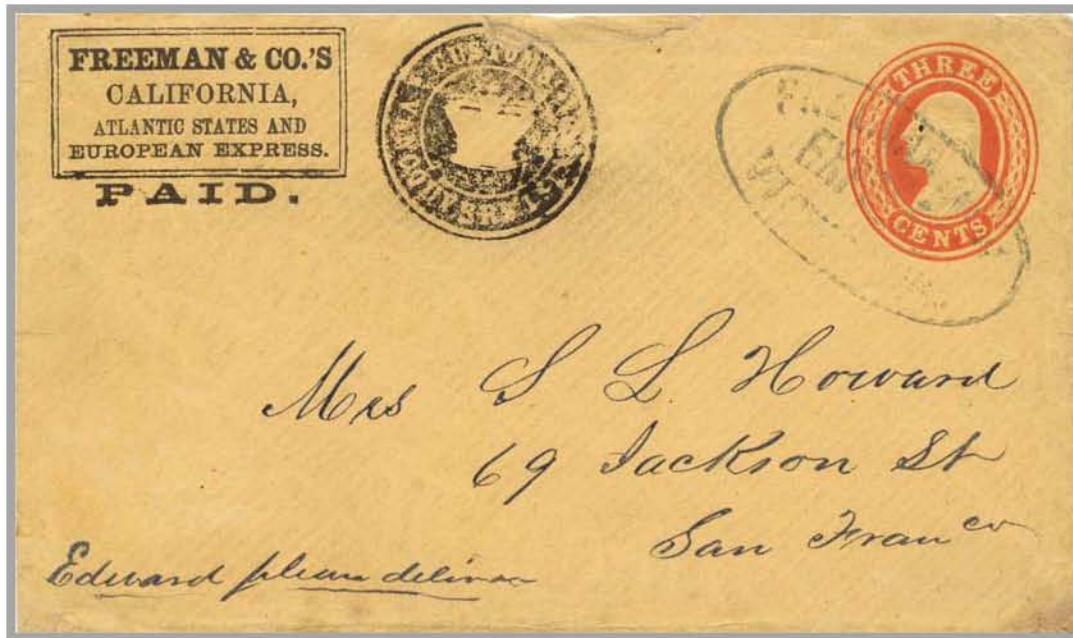 FREEMAN & CO.'S
CALIFORNIA,
ATLANTIC STATES AND
EUROPEAN EXPRESS.
PAID.
THREE
CENTS
Mrs S L Howard
69 Jackson St
San Fran co
Edward please deliver